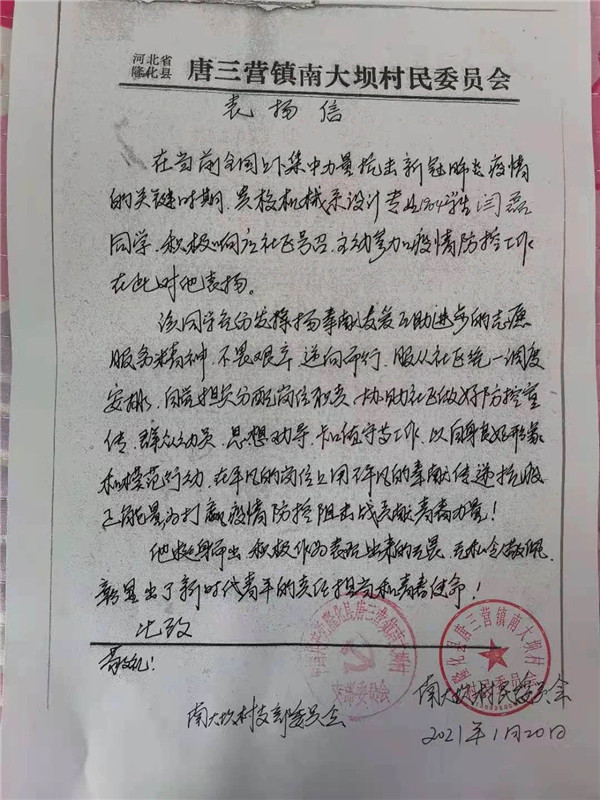 河北省
隆化县 唐三营镇南大坝村民委员会
表扬信
在当前全国上下集中力量抗击新冠肺炎疫情
的关键时期,贵校机械系设计专业1804学生闫磊
同学,积极响应社区号召,主动参加疫情防控工作
在此对他表扬。
该同学充分发挥扬奉献友爱互助进步的志愿
服务精神,不畏艰辛,逆向而行,服从社区统一调度
安排,自觉担负分配岗位职责,协助社区做好防控宣
传、群众动员、思想劝导、卡口值守等工作,以自身良好形象
和模范行动,在平凡的岗位上用不平凡的奉献传递抗疫
正能量为打赢疫情防控阻击战贡献青春力量!
他挺身而出,积极作为表现出来的无畏、无私令人敬佩,
彰显出了新时代青年的责任担当和青春使命!
此致
敬礼!
中国共产党隆化县唐三营镇南大坝村
支部委员会
隆化县唐三营镇南大坝村
村民委员会
南大坝村支部委员会
南大坝村民委员会
2021年1月20日